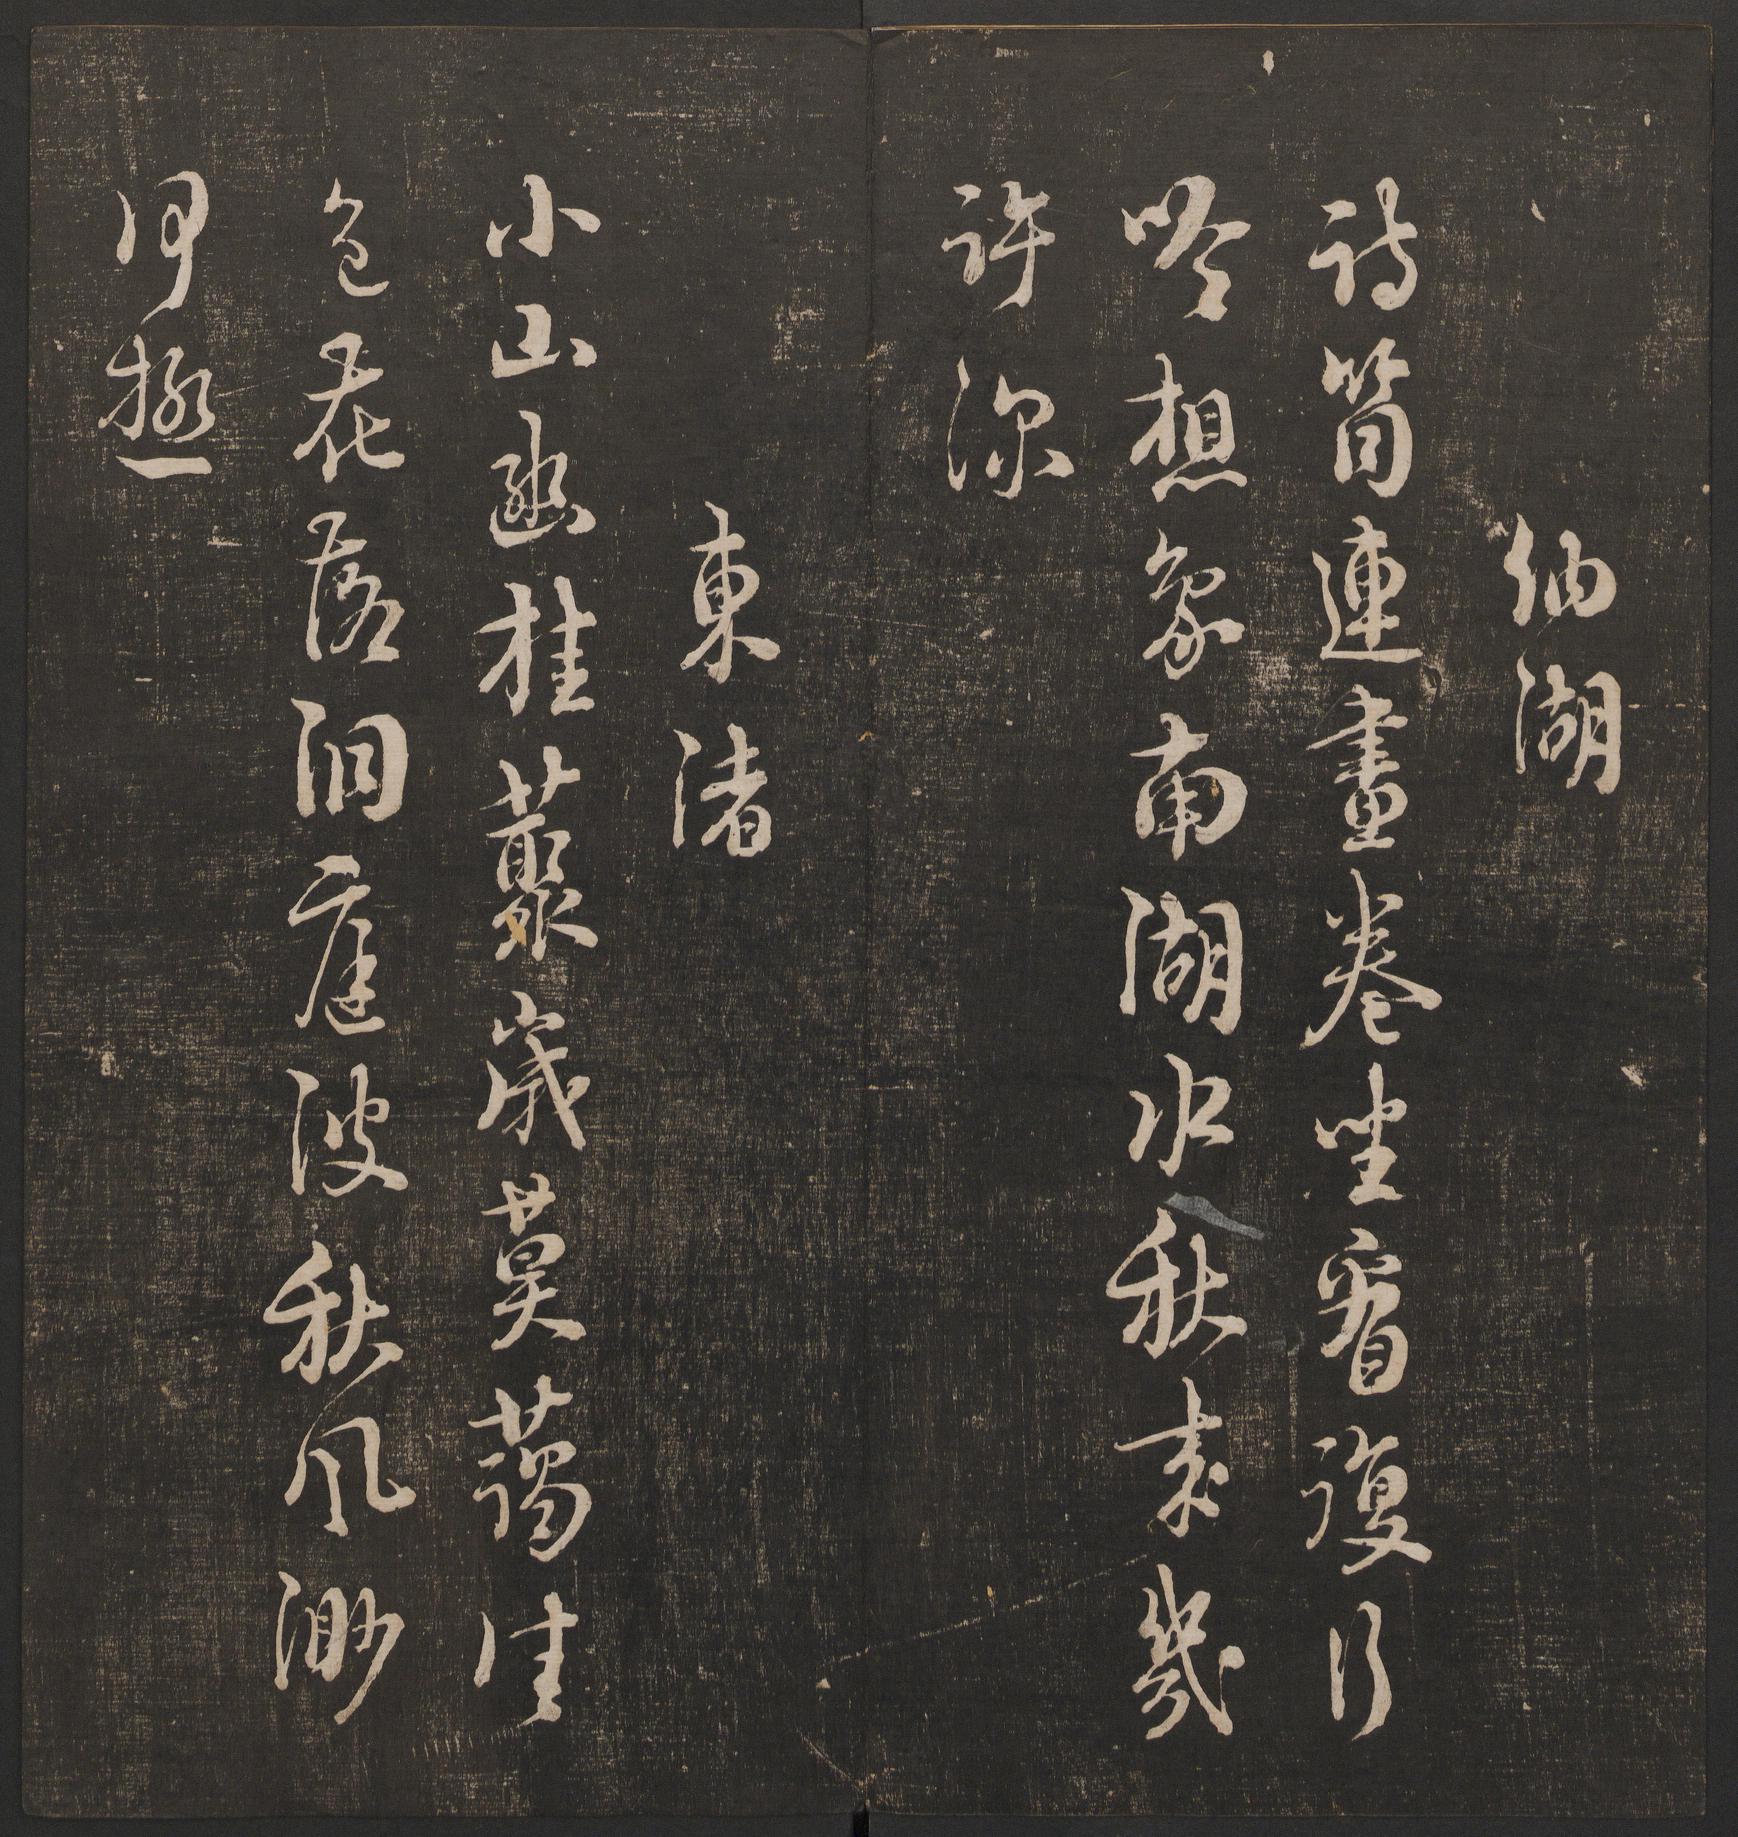 納湖
詩筒連畫卷坐看復行
吟想象南湖水秋來幾
許深
東渚
小山幽桂藂歲莫藹佳
色花落洞庭波秋風渺
何極